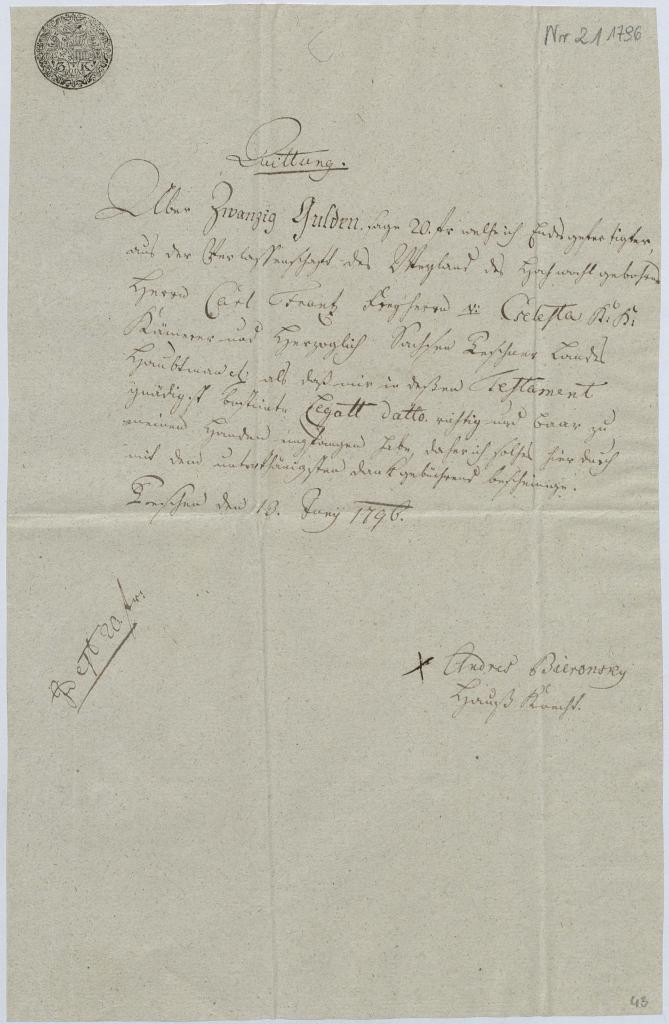 Nr 21 1796
3 K
Quittung.
Über Zwanzig Gulden, sage 20. fr welche ich Endesgefertigter,
aus der Verlassenschaft des Weyland des Hochwohlgebohrnen
Herrn Carl Frantz Freyherrn v: Cselesta K: K:
Kämerer und Herzoglich Sachsen Teschner Landes
Haubtman als daß mir in deßen Testament
gnädigst Legatt datto richtig und baar zu
meinen Handen empfangen habe, daher ich solches hierdurch
mit dem unterthänigsten dank gebührend bescheinige.
Teschen den 13. Juny 1796.
Est 20 fr:
x Andres Bieronsky
Hauß Knecht.
43